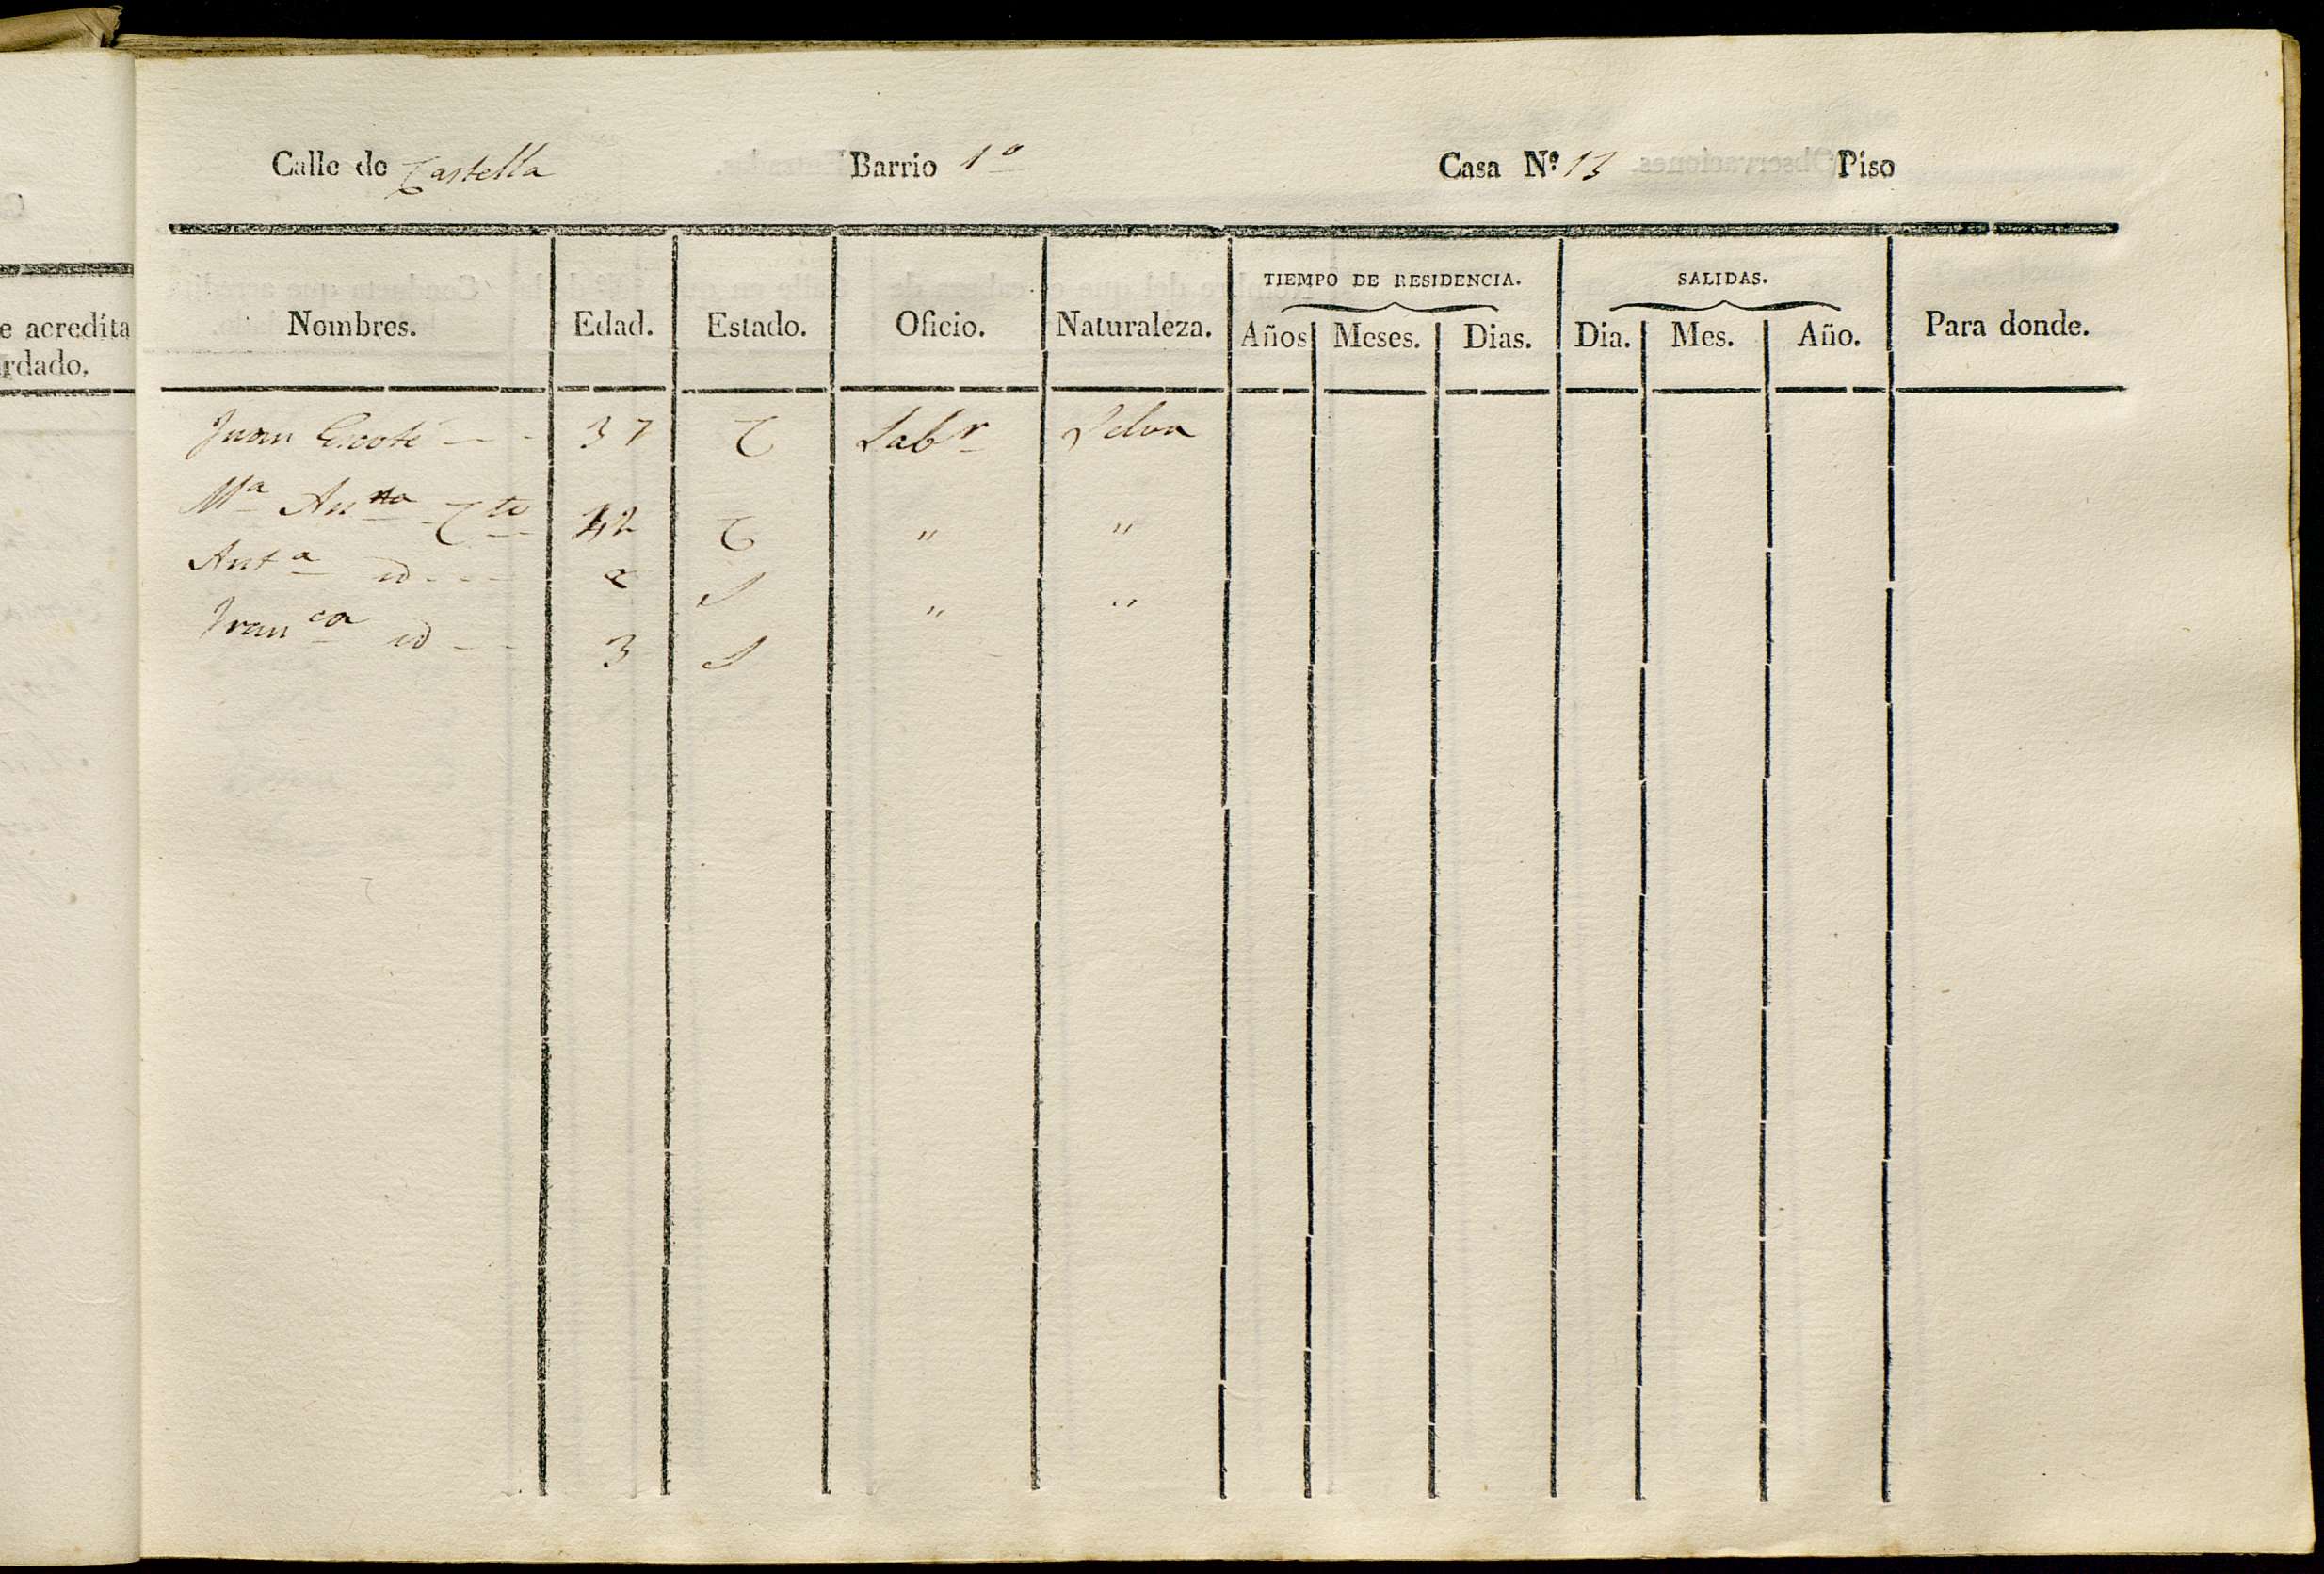 e acredita
rdado.
Calle de Castella Barrio 1º Casa Nº 13 Piso
TIEMPO DE RESIDENCIA. SALIDAS.
Nombres. Edad. Estado. Oficio. Naturaleza. Años Meses. Dias. Dia. Mes. Año. Para donde.
Juan Escoté 37 C Labr Selva
Mª Antta 42 C " "
Antª id S " "
Franca id 3 S